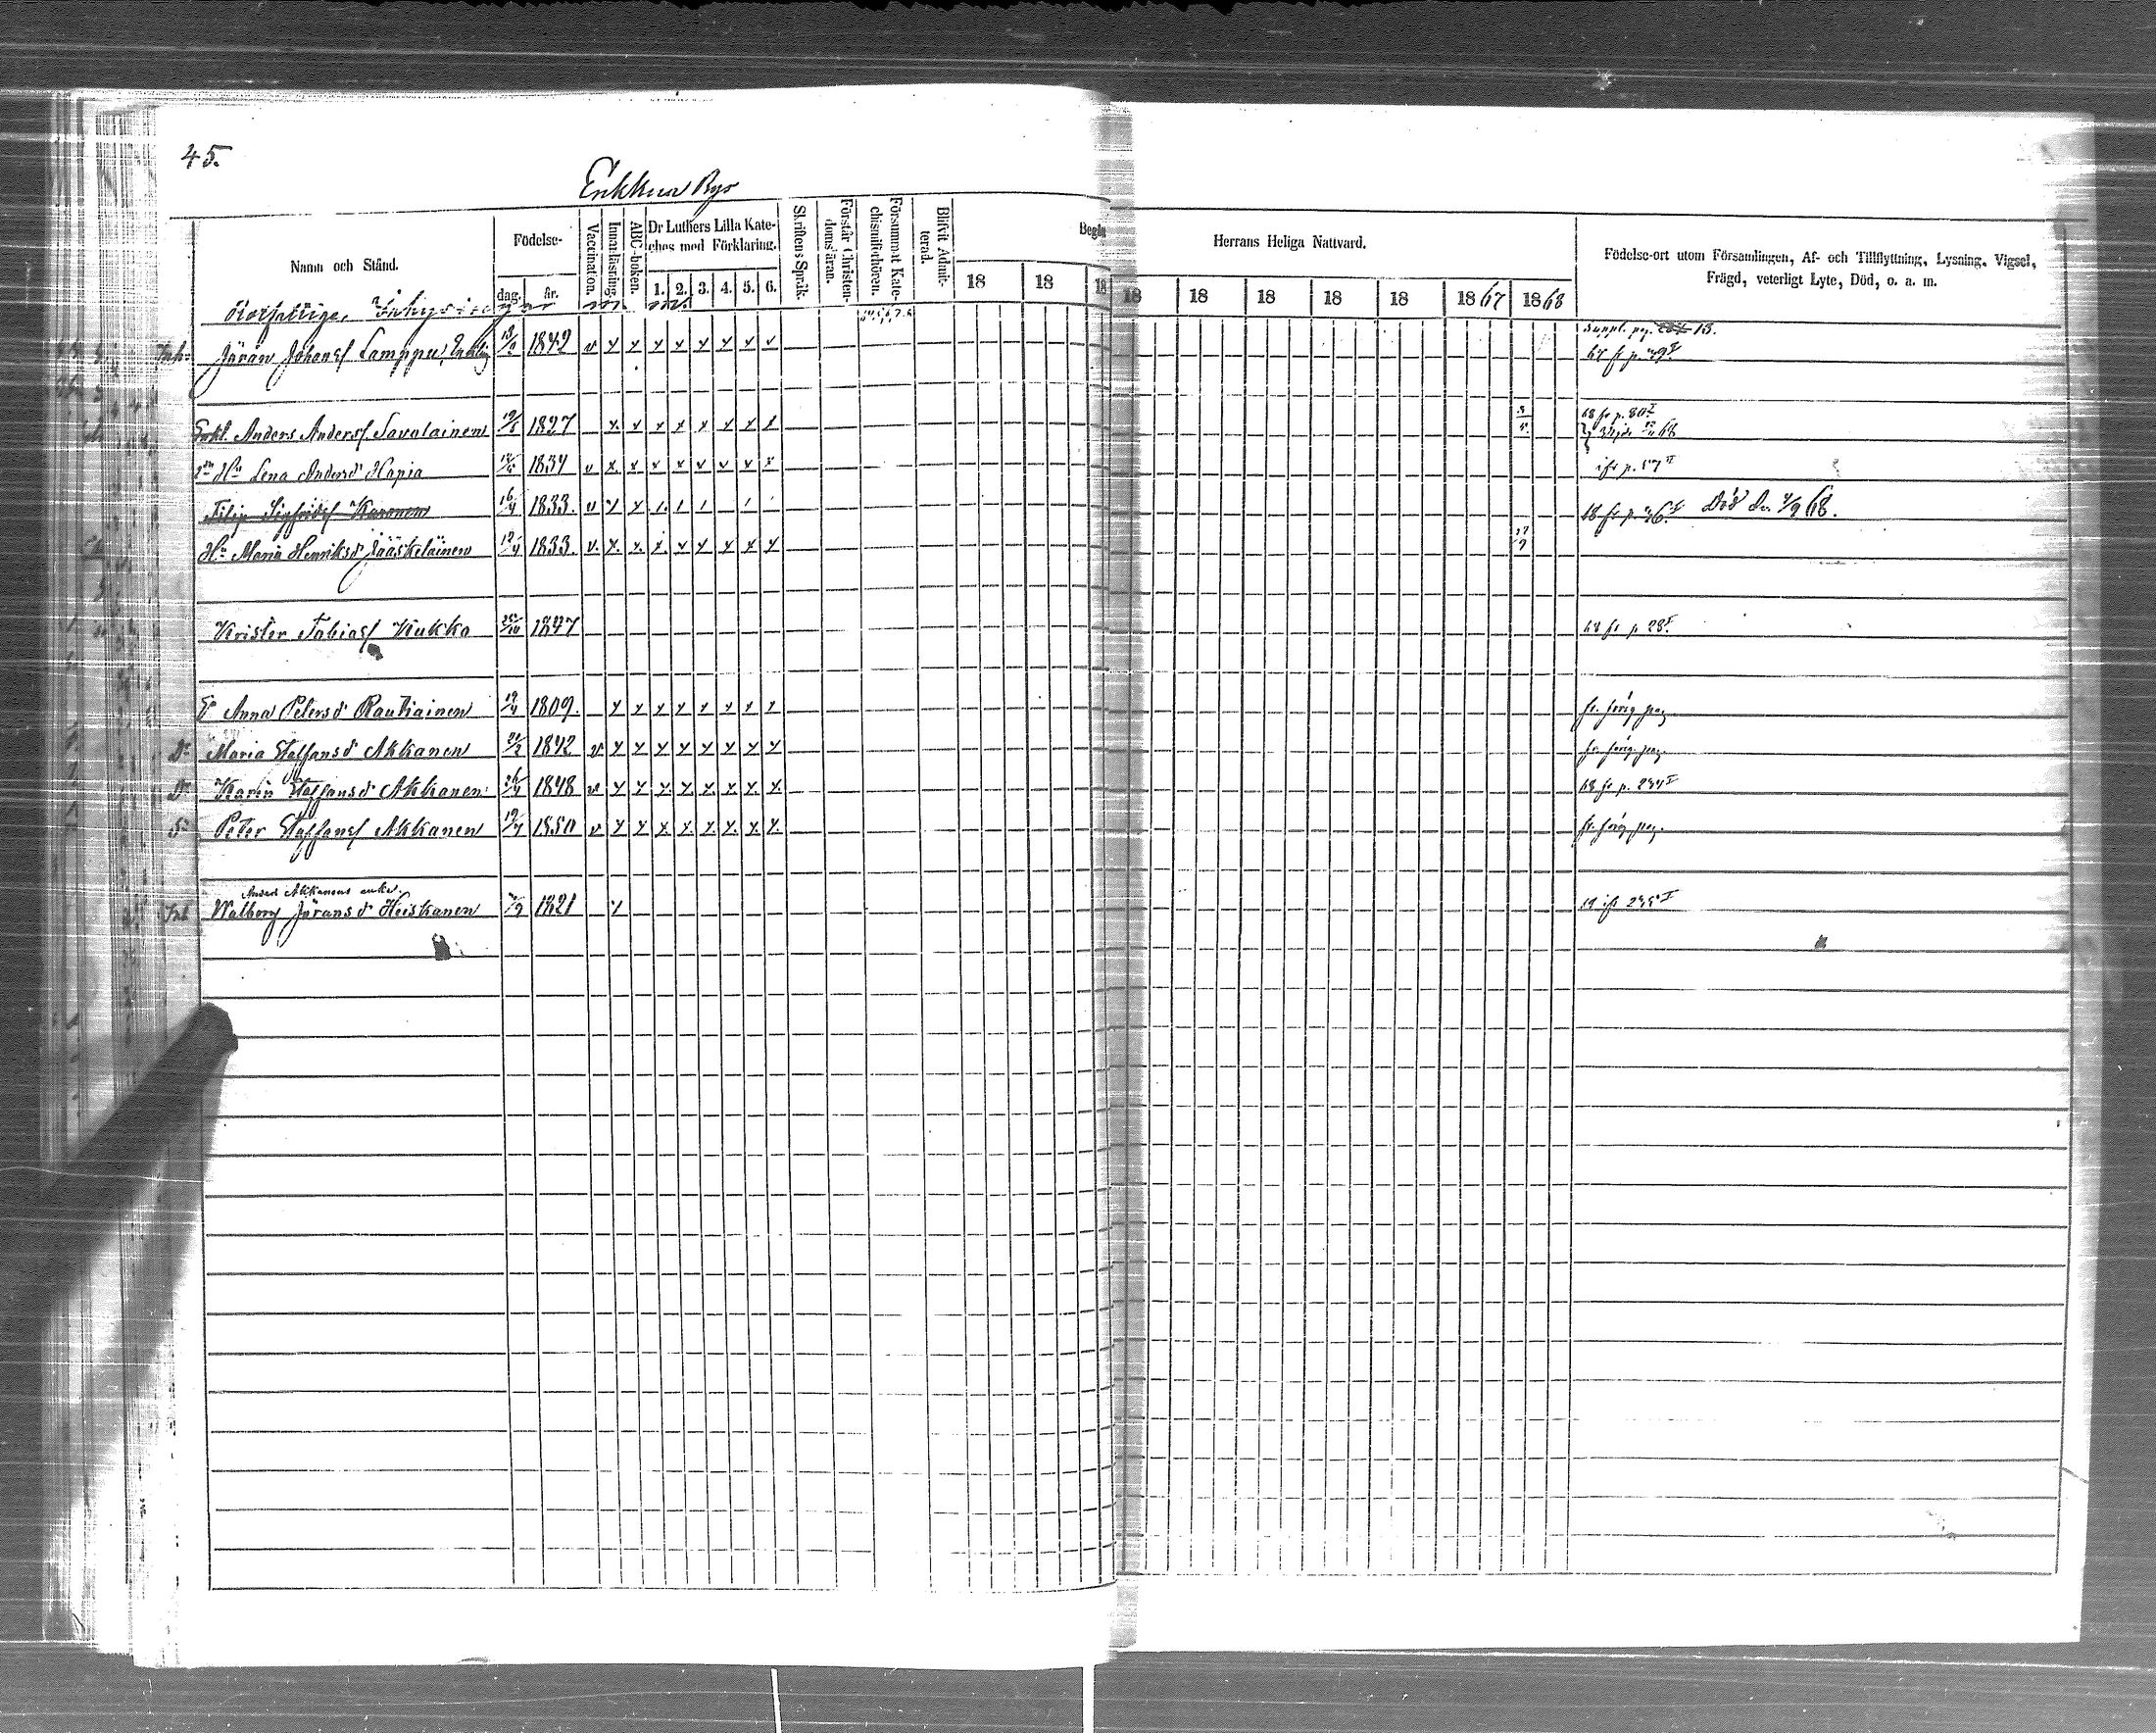 45.
Enkkua Bys
Namn och Stånd.
Födelse-
dag.
år.
Vaccination.
Innanläsning.
ABC-boken.
Dr Luthers Lilla Kate-
ches med Förklaring.
1. 2. 3. 4. 5. 6.
Skriftens Språk.
Förstår Christen-
domsläran.
Försummat Kate-
chismiförhören.
Blifvit Admit-
terad.
Begå
Herrans Heliga Nattvard.
18 18 18 18 18 18 18 18 1867 1868
Födelse-ort utom Församlingen, Af- och Tillflyttning, Lysning, Vigsel,
Frägd, veterligt Lyte, Död, o. a. m.
Suppl. pag. 13.
Inh: Jöran Johansf Lamppu, Enkling 1842 v x x x x x x x v
Enkl. Anders Andersf Savolainen 1827 x x x x x x x x 68 fr p. 80 I
Vigde 68
2dra Hu Lena Andersdr Hapia 1834 v x x x x x x x x
Filip Sigfridsf Karonen 16/4 1833. v x x 1. 1 1 1 1 Död d. 4/9 68.
Hu Maria Henriksdr Jääskeläinen 1833. v. x. x. x. x x x x x
Krister Tobiasf Kukko 25/10 1847 68 fr p 28 I
E Anna Petersdr Rautiainen 19/4 1809. x x x x x x x x fr. förig pag
Dr Maria Staffansdr Akkanen 1842 v x x x x x x x x fr. förig. pag.
Dr Karin Staffansdr Akkanen 1848 v x x x x x x x x 68 fr p. 234 I
Sn Peter Staffansf Akkanen 1850 v x x x x x x x x fr. förig pag.
Anders Akkanens enka.
Inh Walborg Jöransdr Heiskanen 1821 x